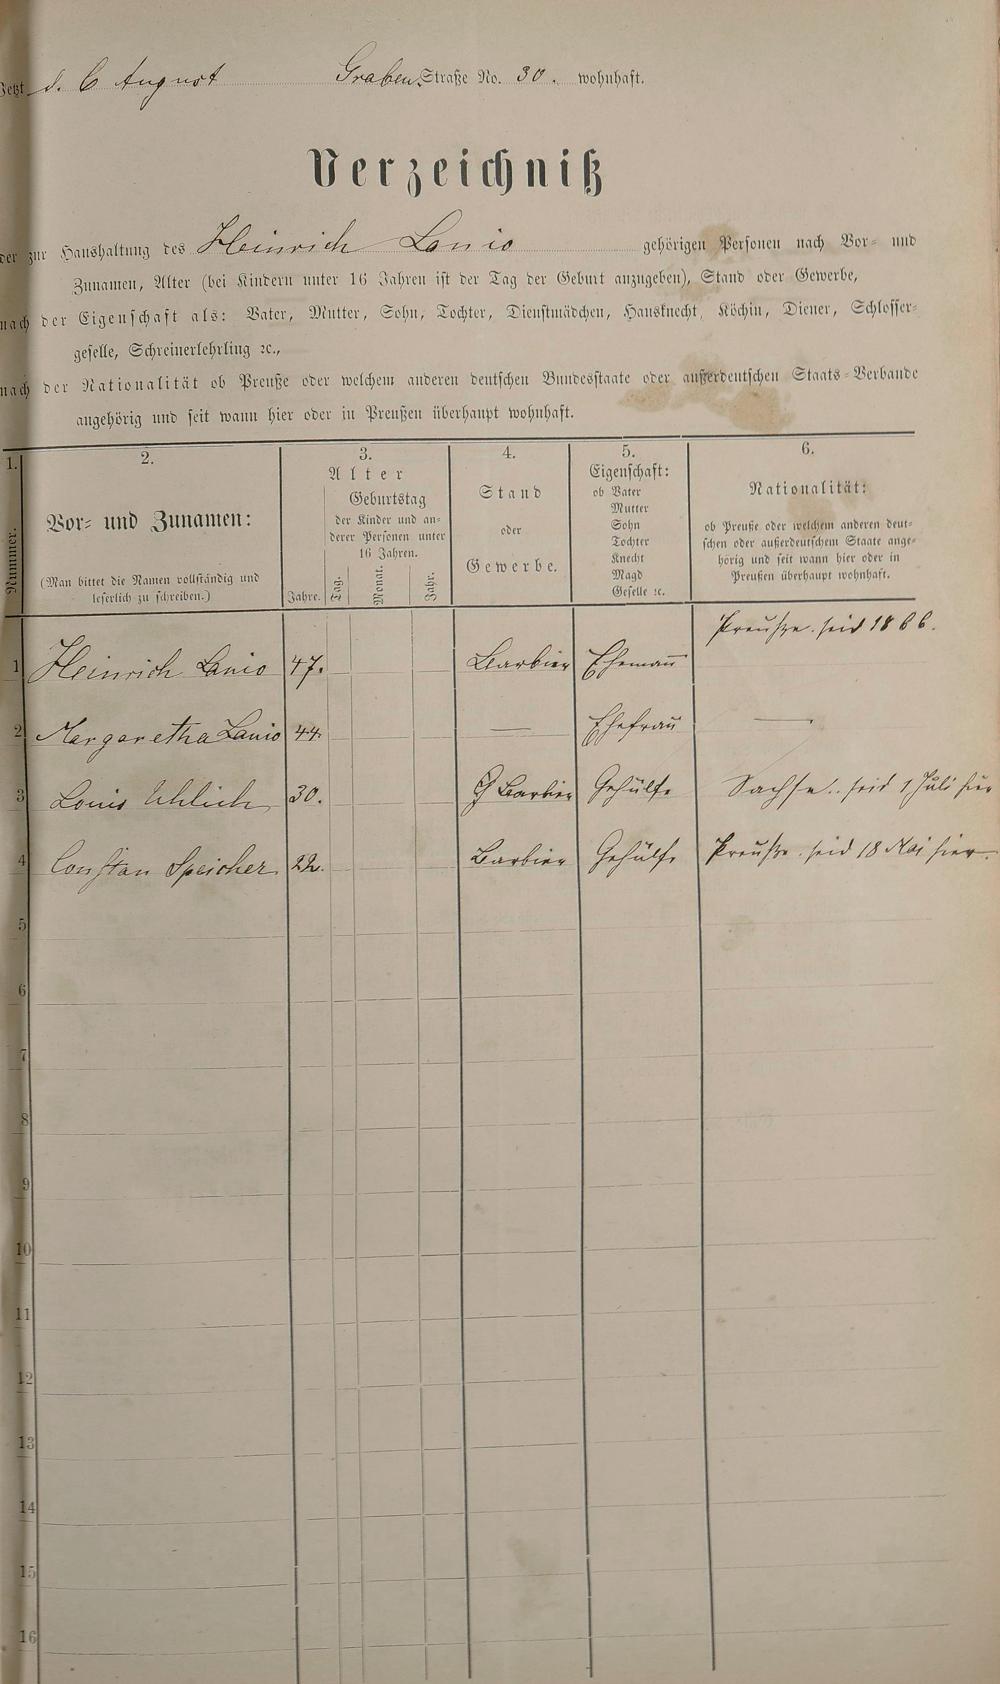 Jetzt d. 6 August Graben Straße No. 30. wohnhaft.
Verzeichniß
der zur Haushaltung des Heinrich Lanio gehörigen Personen nach Vor- und
Zunamen, Alter (bei Kindern unter 16 Jahren ist der Tag der Geburt anzugeben), Stand oder Gewerbe,
nach der Eigenschaft als: Vater, Mutter, Sohn, Tochter, Dienstmädchen, Hausknecht, Köchin, Diener, Schlosser-
geselle, Schreinerlehrling ꝛc.,
nach der Nationalität ob Preuße oder welchem anderen deutschen Bundesstaate oder außerdeutschen Staats-Verbande
angehörig und seit wann hier oder in Preußen überhaupt wohnhaft.
1. 2. 3. 4. 5. 6.
Nummer.
Vor- und Zunamen:
(Man bittet die Namen vollständig und
leserlich zu schreiben.)
Alter
Jahre.
Geburtstag
der Kinder und an-
derer Personen unter
16 Jahren.
Tag. Monat. Jahr.
Stand
oder
Gewerbe.
Eigenschaft:
ob Vater
Mutter
Sohn
Tochter
Knecht
Magd
Geselle ꝛc.
Nationalität:
ob Preuße oder welchem anderen deut-
schen oder außerdeutschem Staate ange-
hörig und seit wann hier oder in
Preußen überhaupt wohnhaft.
1 Heinrich Lanio 47. Barbier Ehemann̄ Preuße. seid 1866.
2 Margaretha Lanio 44. — Ehefrau —
3 Louis Uhlich 30. Barbier Gehülfe Sachse.. seid 1 Juli hier
4 Constan Speicher 22. Barbier Gehülfe Preuße. seid 18 Mai hier.
5
6
7
8
9
10
11
12
13
14
15
16